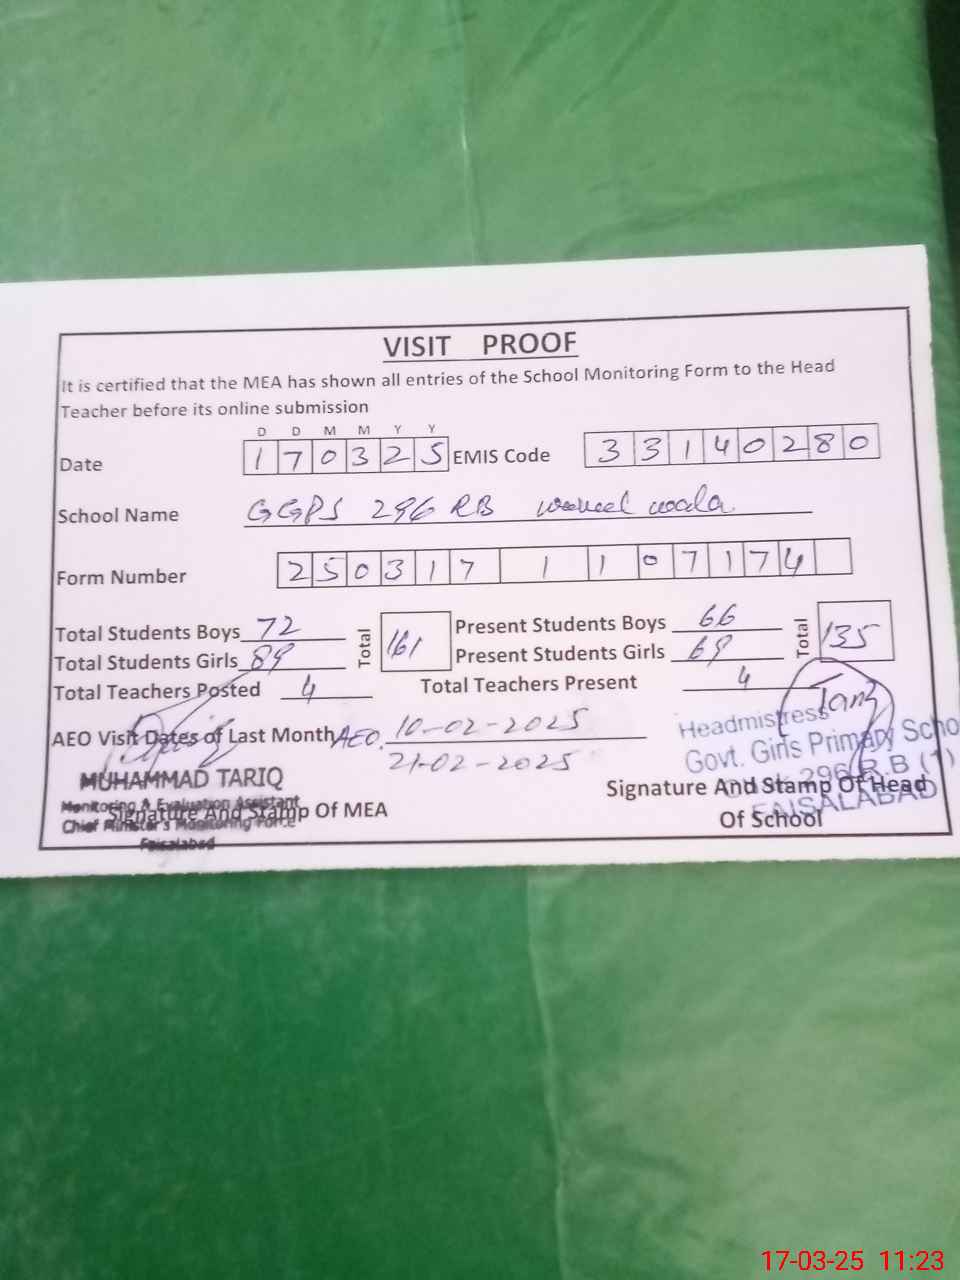 VISIT PROOF
It is certified that the MEA has shown all entries of the School Monitoring Form to the Head
Teacher before its online submission
D D M M Y Y
Date 1 7 0 3 2 5 EMIS Code 3 3 1 4 0 2 8 0
School Name GGPS 296 RB wala
Form Number 2 5 0 3 1 7 1 1 0 7 1 7 4
Total Students Boys 72 Total 161 Present Students Boys 66 Total 135
Total Students Girls 89 Present Students Girls 69
Total Teachers Posted 4 Total Teachers Present 4
AEO Visit Dates of Last Month AEO. 10-02-2025
21-02-2025
Headmistress
Govt. Girls Primary Scho
296 R.B (1)
FAISALABAD
MUHAMMAD TARIQ
Monitoring & Evaluation Assistant
Chief Minister's Monitoring Force
Faisalabad
Signature And Stamp Of MEA
Signature And Stamp Of Head
Of School
17-03-25 11:23